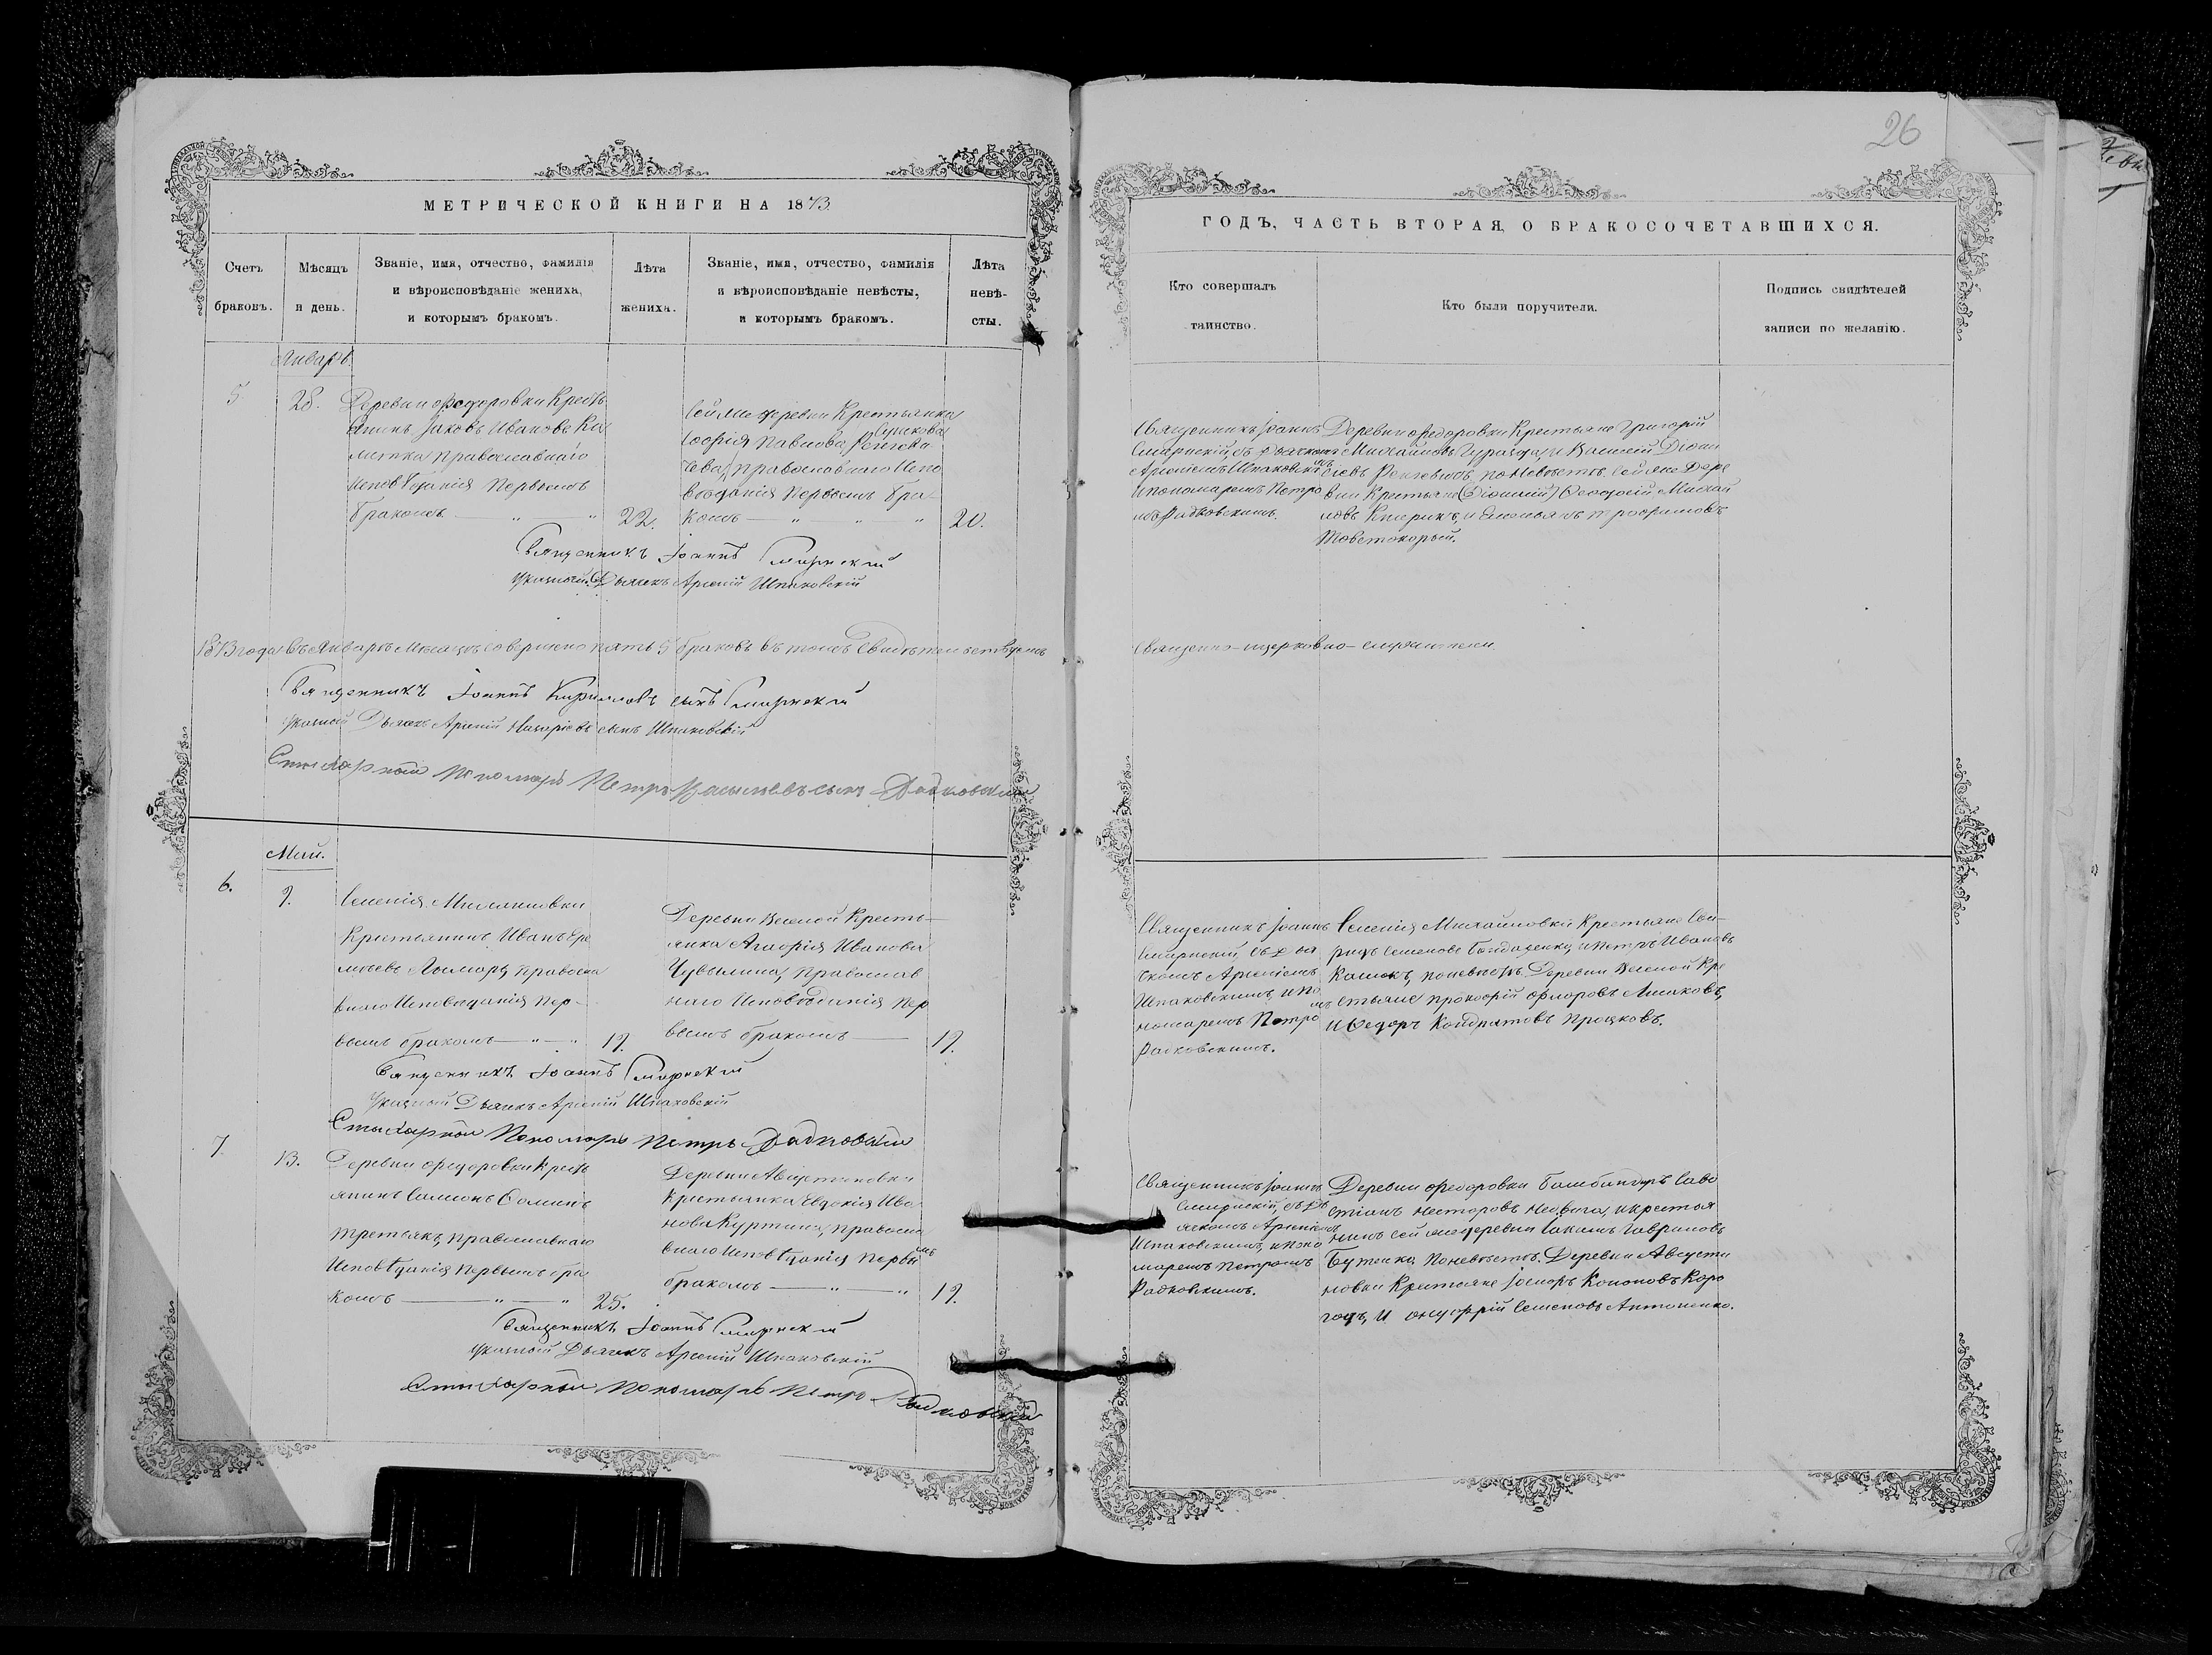 26
МЕТРИЧЕСКОЙ КНИГИ НА 1873
ГОДЪ, ЧАСТЬ ВТОРАЯ, О БРАКОСОЧЕТАВШИХСЯ.
Счетъ браковъ.
Мѣсяцъ и день.
Званіе, имя, отчество, фамилія
и вѣроисповѣданіе жениха,
и которымъ бракомъ.
Лѣта жениха.
Званіе, имя, отчество, фамилія
и вѣроисповѣданіе невѣсты,
и которымъ бракомъ.
Лѣта невѣ-
сты.
Кто совершалъ
таинство.
Кто были поручители.
Подпись свидѣтелей
записи по желанію.
Январь.
5.
28.
Деревни Ѳедоровки Кресть
янинъ Іаковъ Ивановъ Ка
православнаго
исповѣданія первымъ
бракомъ
22.
Сей же деревни Крестьянка
Софія Павлова
православнаго испо
вѣданія первымъ бра-
комъ
20.
Священникъ Іоаннъ
Смирнскій, съ дьячкомъ
Арсеніемъ Шпаковскимъ
и пономаремъ Петро
мъ Радковскимъ.
Деревни Ѳедоровки Крестьяне Григорій
Михайловъ и Василій Діони
сіевъ по невѣстѣ. Сей же дере
вни Крестьяне (Діонисій) Ѳеодосій Михай
ловъ и Емельянъ Трофимовъ
Священникъ Іоаннъ Смирнскій
Указный Дьячекъ Арсеній Шпаковскій
1873 года въ Январѣ мѣсяцѣ совершено пять 5 браковъ въ томъ свидѣтельствуемъ
Священно-церковно-служители
Священникъ Іоаннъ Кирилловъ сынъ Смирнскій
Указный Дьячекъ Арсеній Назаріевъ сынъ Шпаковскій
Стихарный Пономарь Петръ Васильевъ сынъ Радковскій
Май.
6.
9.
Селенія Михайловки
Крестьянинъ Иванъ Ере
мѣевъ Лымарь, православ
внаго исповѣданія пер-
вымъ бракомъ
19.
Деревни Веселой Кресть-
янка Агафія Иванова
Чувылина, православ
наго исповѣданія пер
вымъ бракомъ
19.
Священникъ Іоаннъ
Смирнскій, съ дья
чкомъ Арсеніемъ
Шпаковскимъ, и по
номаремъ Петро
мъ Радковскимъ.
Селенія Михайловки Крестьяне Сви-
ридъ Семеновъ Бондаренко, и Петръ Ивановъ
по невѣстѣ. Деревни Веселой Кре
стьяне Прокофій Флоровъ Лысаковъ,
и Ѳедоръ Кондратовъ Процковъ.
Священникъ Іоаннъ Смирнскій
Указный Дьячекъ Арсеній Шпаковскій
Стихарный Пономарь Петръ Радковскій
7.
13.
Деревни Ѳедоровки Кресть
янинъ Самсонъ Ѳоминъ
Третьякъ, православнаго
исповѣданія первымъ бра
комъ
25.
Деревни Августиновки
Крестьянка Евдокія Ива
нова Куртина, православ
внаго исповѣданія первымъ
бракомъ
19.
Священникъ Іоаннъ
Смирнскій, съ дь
ячкомъ Арсеніемъ
Шпаковскимъ, и поно
маремъ Петромъ
Радковскимъ.
Деревни Ѳедоровки Савас
стіанъ Несторовъ и крестья
нинъ сей же деревни Іакимъ Гавриловъ
Бутенко, по невѣстѣ. Деревни Августи
новки Крестьяне Кононовъ
и Онуфрій Семеновъ Антоненко.
Священникъ Іоаннъ Смирнскій
Указный Дьячекъ Арсеній Шпаковскій
Стихарный Пономарь Петръ Радковскій